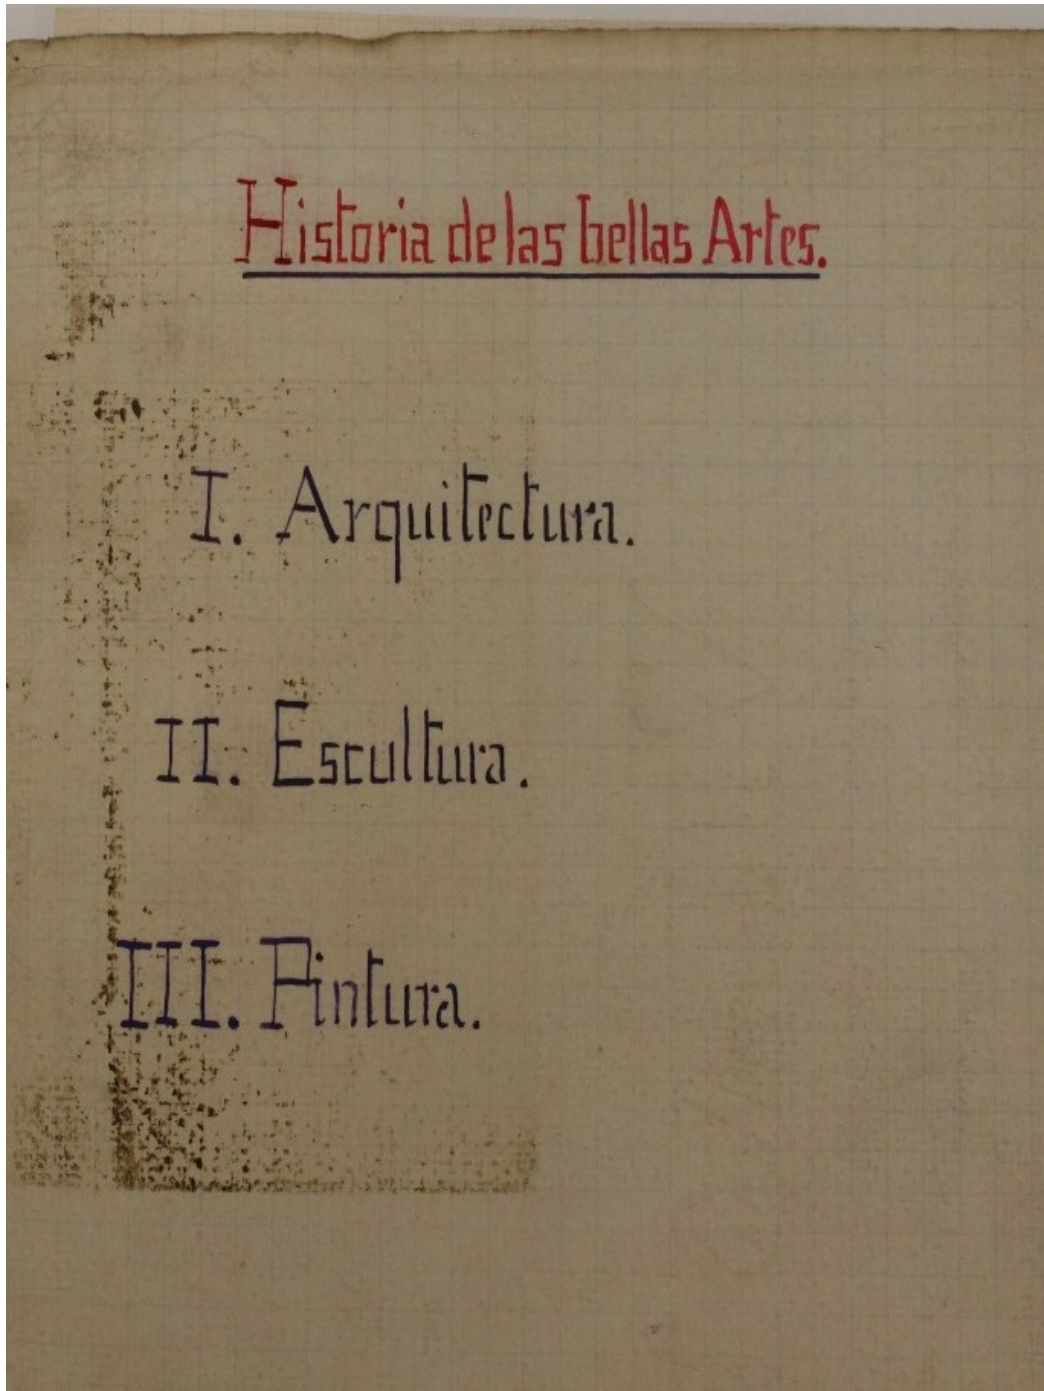 Historia de las bellas Artes.
I. Arquitectura.
II. Escultura.
III. Pintura.